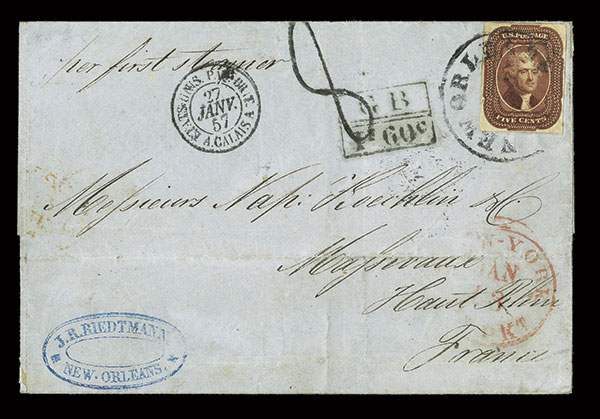 per first steamer
ETATS-UNIS. P. BR.
27
JANV.
57
A. CALAIS A
8
G B
1F 60c
NEW ORLE
U.S. POSTAGE
FIVE CENTS
Messieurs Nap: Koechlin & C.
Massevaux
Haut Rhin
France
W-YORK
JAN
PKT
J. R. RIEDTMANN
NEW-ORLEANS.